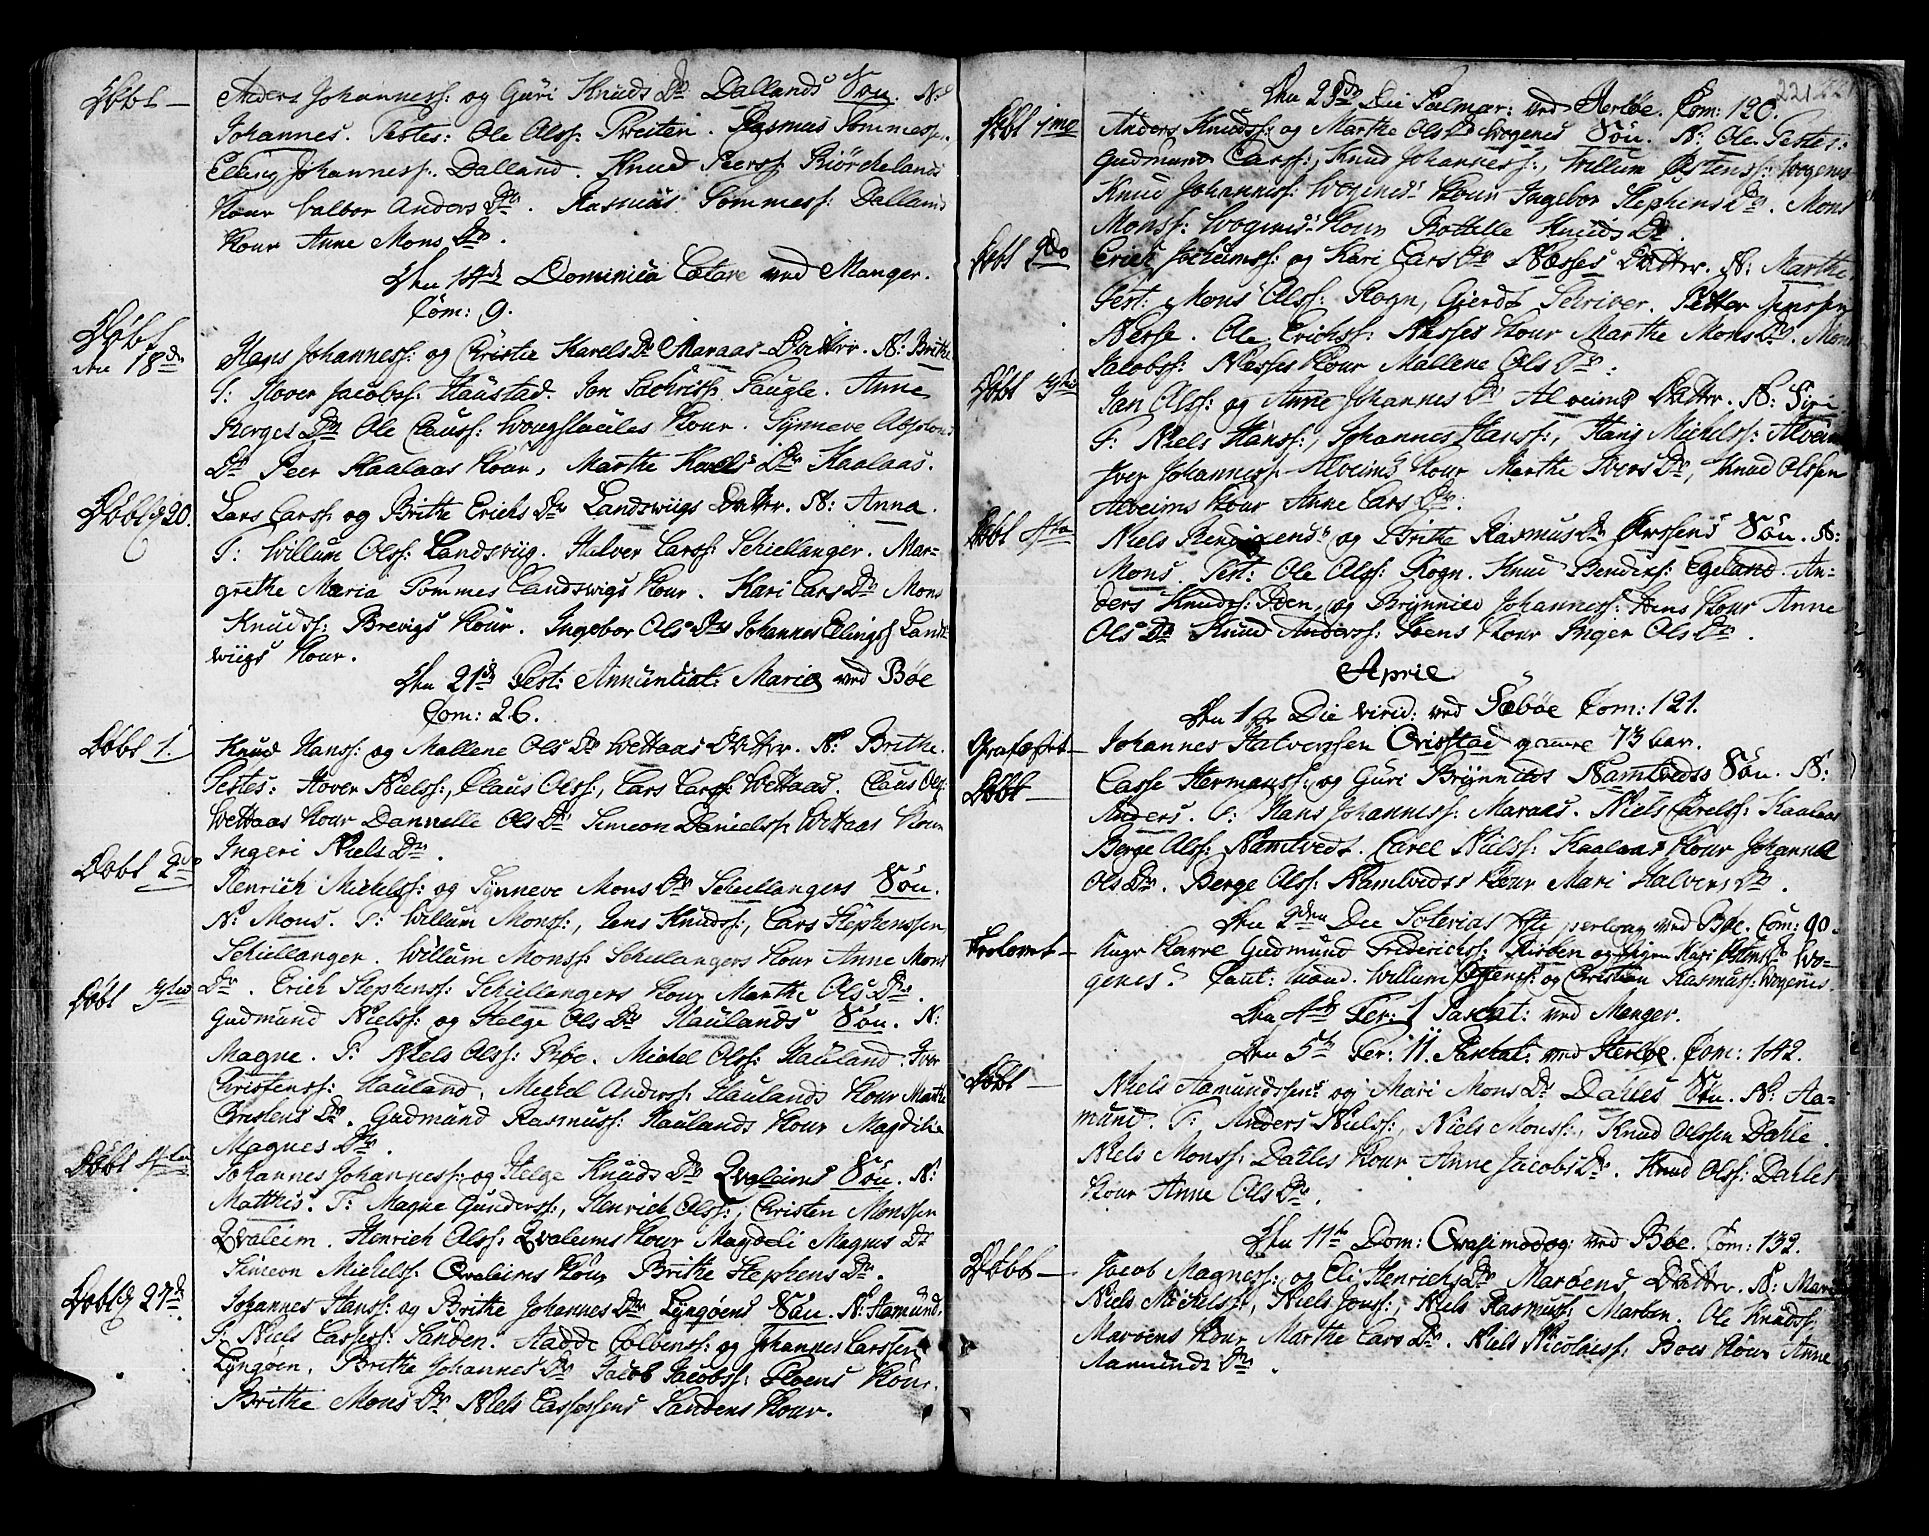 Döbt — Anders Johanness: og Guri Knuds Dr Dallands Sön. N:
Johannes. Testes: Ole Olss: Tveiten. Rasmus Tommess:
Elling Johanness: Dalland. Knud Peerss: Biörchelands
Kour Valbor Anders Dr. Rasmus Tommess: Dallands
Kour Anne Mons Dr.
Den 14de Dominica Lætare ved Manger.
Com: 9.
Döbt den 18de Hans Johanness: og Christie Karels Dr Maraas Datter. N: Brithe
T: Hover Jacobss: Haustad. Jon Sachriss: Faugle. Anne
Berges Dr Ole Clauss: Kour. Synneve Absolons
Dr Peer Kaalaas Kour, Marthe Karels Dr Kaalaas.
Döbt d 20. Lars Larss: og Brithe Erichs Dr Landsviigs Datter. N: Anna.
T: Willum Olss: Landsviig. Halver Larss: Schiellanger. Mar-
grethe Maria Tommes Landsvigs Kour. Kari Lars Dr Mons
Knudss: Brevigs Kour. Ingebor Ols Dr Johannes Ellingss: Lands
viigs Kour.
Den 21de Fest: Annuntiat: Mariæ ved Böe
Com: 26.
Döbt 1. Knud Hanss: og Mallene Ols Dr Wettaas Datter. N: Brithe.
Testes: Hover Nielss:, Claus Olss:, Lars Larss: Wettaas. Claus Olss:
Wettaas Kour Dannelle Ols Dr Simeon Danielss: Wettaas Kour
Ingeri Niels Dr.
Döbt 2do Henrich Michelss: og Synneve Mons Dr Schiellangers Sön.
N: Mons. T: Willum Monss:, Jens Knudss:, Lars Stephenssen
Schiellanger. Willum Monss: Schiellangers Kour Anne Mons
Dr. Erich Stephenss: Schiellangers Kour Marthe Ols Dr.
Döbt 3tio Gudmund Nielss: og Helge Ols Dr Haulands Sön. N:
Magne. T: Niels Olss: Böe. Michel Olss: Hauland. Iver
Christenss: Hauland, Michel Anderss: Haulands Kour Marthe
Christens Dr. Gudmund Rasmuss: Haulands Kour Magdelie
Magnes Dr.
Döbt 4to Johannes Johanness: og Helge Knuds Dr Qvaleims Sön. N:
Matthis. T: Magne Gunderss:, Henrich Olss:, Christen Monssen
Qvaleim. Henrich Olss: Qvaleims Kour Magdeli Magnes Dr
Simeon Michelss: Qvaleims Kour Brithe Stephens Dr.
Döbt d 27de Johannes Hanss: og Brithe Johannes Dr Lyngöens Sön. N: Hamund.
T: Niels Lasses: Sanden. Aadde Colbenss: og Johannes Larssen
Lyngöen, Brithe Johannes Dr Jacob Jacobss: Floens Kour.
Brithe Mons Dr Niels Lassessens Sandens Kour.
221
Den 28de Die Palmar: ved Herlöe. Com: 120.
Döbt 1mo Anders Knudss: og Marthe Ols Dr Wogenes Sön. N: Ole. Testes:
Gudmund Larss:, Knud Johanness:, Willum Östenss: Wogenes
Knud Johanness: Wogenes Kour Ingebor Stephens Dr. Mons
Monss: Wogenes Kour Botille Knuds Dr.
Döbt 2do Erich Jochumss: og Kari Lars Dr Næsses Datter. N: Marthe.
Test: Mons Olss: Rogn, Gierdt Schriver. Petter Jenssen
Nerse. Ole Erichss: Næsses Kour Marthe Mons Dr. Mons
Jacobss: Næsses Kour Mallene Ols Dr.
Döbt 3tio Jan Olss: og Anne Johannes Dr Alveims Datter. N: Siri.
T: Niels Hanss:, Johannes Hanss:, Hans Michelss: Alveim
Iver Johanness: Alveims Kour Marthe Ivers Dr, Knud Olssen
Alveims Kour Anne Lars Dr.
Döbt 4to Niels og Brithe Rasmus Dr Sön. N:
Mons. Test: Ole Olss: Rogn. Knud Benders: Egeland. An-
ders Knudss: Iden, og Brynnild Johanness: Idens Kour Anne
Ols Dr Knud Anderss: Idens Kour Inger Ols Dr.
April
Den 1ste Die virid: ved Sæböe Com: 121.
Grafæst — Johannes Halverssen Orisstad gamle 73 aar.
Döbt — Lasse Hermanss: og Guri Brynnilds Namtvedts Sön. N:
Anders. T: Hans Johanness: Maraas. Niels Carelss: Kaalaas
Berge Olss: Namtvedt. Carel Nielss: Kaalaas Kour Johanna
Ols Dr. Berge Olss: Namtvedts Kour Mari Halvers Dr.
Den 2den Die Soterias ved Böe. Com: 90.
Trolovet — Ungr Karre Gudmund Friderichss: Risöen og Pigen Kari Östens Dr Wo-
genes. Caut: Willum Östenss: og Christian Rasmuss: Wogenes.
Den 4de Fer: 1 Paschat: ved Manger.
Den 5te Fer: 11. Paschat: ved Herlöe. Com: 142.
Döbt — Niels Aamundssens og Mari Mons Dr Dahles Sön. N: Aa-
mund. T: Anders Nielss:, Niels Monss:, Knud Olssen Dahle.
Niels Monss: Dahles Kour Anne Jacobs Dr. Knud Olss: Dahles
Kour Anne Ols Dr.
Den 11te Dom: Qvasimodog: ved Böe. Com: 132.
Döbt — Jacob Magness: og Eli Henrichs Dr Maröens Datter. N: Mari
Niels Michelss:, Niels Jonss:, Niels Rasmuss: Maröen. Ole Knudss:
Maröens Kour Marthe Lars Dr. Niels Nicolaiss: Böes Kour Anne
Aamunds Dr.